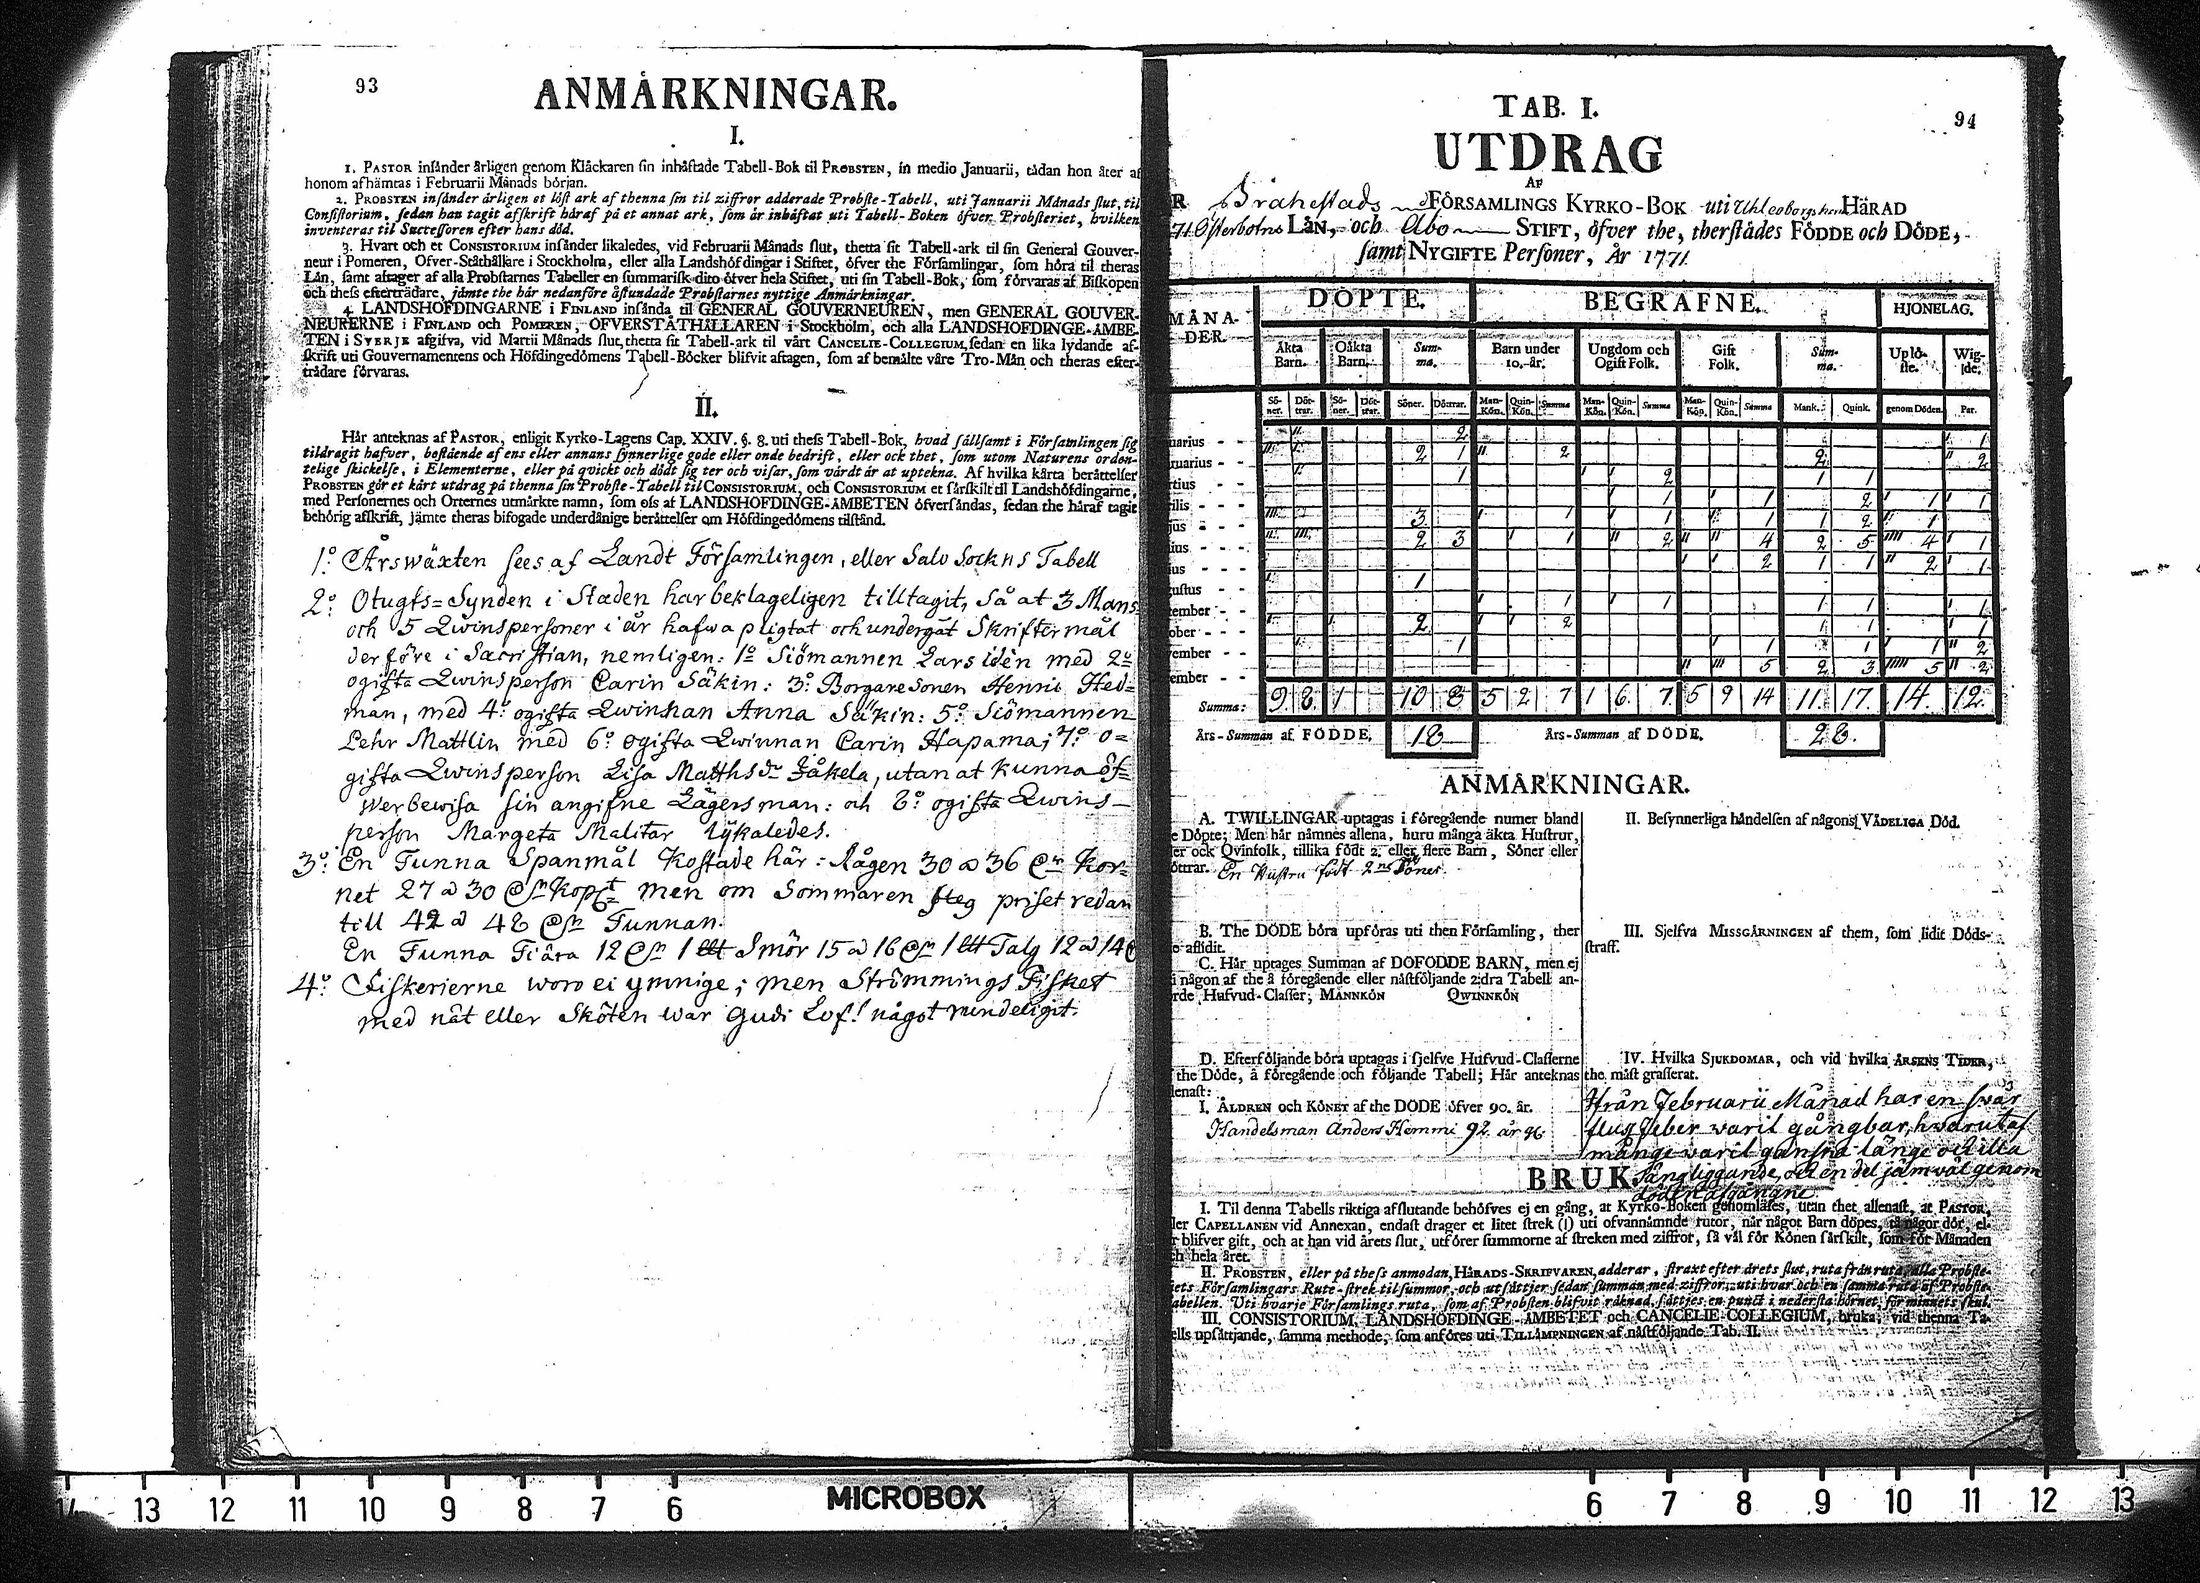 93
ANMÄRKNINGAR.
I.
1. PASTOR insänder årligen genom Klåckaren sin inhäftade Tabell-Bok til PROBSTEN, in medio Januarii, tådan hon åter af
honom afhämtas i Februarii Månads början.
2. PROBSTEN insänder årligen et löst ark af thenna sin til ziffror adderade Probste-Tabell, uti Januarii Månads slut, til
Consistorium, sedan han tagit afskrift häraf på et annat ark, som är inhäftat uti Tabell-Boken öfver Probsteriet, hvilken
inventeras til Successoren efter hans död.
3. Hvart och et CONSISTORIUM insänder likaledes, vid Februarii Månads slut, thetta sit Tabell-ark til sin General Gouver-
neur i Pomeren, Ofver-Ståthållare i Stockholm, eller alla Landshöfdingar i Stiftet, öfver the Församlingar, som höra til theras
Län, samt aftager af alla Probstarnes Tabeller en summarisk dito öfver hela Stiftet, uti sin Tabell-Bok, som förvaras af Biskopen
och thess efterträdare, jämte the här nedanföre åstundade Probstarnes nyttige Anmärkningar.
4. LANDSHÖFDINGARNE i FINLAND insända til GENERAL GOUVERNEUREN, men GENERAL GOUVER-
NEURERNE i FINLAND och POMEREN, ÖFVERSTÅTHÅLLAREN i Stockholm, och alla LANDSHÖFDINGE-ÄMBE-
TEN i SVERJE afgifva, vid Martii Månads slut, thetta sit Tabell-ark til vårt CANCELIE-COLLEGIUM, sedan en lika lydande af-
skrift uti Gouvernamentens och Höfdingedömens Tabell-Böcker blifvit aftagen, som af bemälte våre Tro-Män och theras efter-
trädare förvaras.
II.
Här anteknas af PASTOR, enligit Kyrko-Lagens Cap. XXIV. §. 8. uti thess Tabell-Bok, hvad sällsamt i Församlingen sig
tildragit hafver, bestående af ens eller annans synnerlige gode eller onde bedrift, eller ock thet, som utom Naturens orden-
telige skickelse, i Elementerne, eller på qvickt och dödt sig ter och visar, som värdt är at uptekna. Af hvilka kårta berättelser
PROBSTEN gör et kårt utdrag på thenna sin Probste-Tabell til CONSISTORIUM, och CONSISTORIUM et särskilt til Landshöfdingarne,
med Personernes och Orternes utmärkte namn, som oss af LANDSHÖFDINGE-ÄMBETEN öfversändas, sedan the häraf tagit
behörig afskrift, jämte theras bifogade underdånige berättelser om Höfdingedömens tilstånd.
1:o Årswäxten sees af Landt Församlingen, eller Salo Sockns Tabell
2:o Otugts-Synden i Staden har beklageligen tilltagit, så at 3 Mans
och 5 Qwinspersoner i år hafwa pligtat och undergåt Skriftermål
derföre i Sacristian, nemligen: 1:o Siömannen Lars Idèn med 2:o
ogifta Qwinsperson Carin Säkin: 3:o Borgare Sonen Henric Hed-
man, med 4:o ogifta Qwinskan Anna Säkin: 5:o Siömannen
Pehr Mattlin med 6:o ogifta Qwinnan Carin Hapama; 7:o o-
gifta Qwinsperson Lisa Matths dr Jåkela, utan at kunna öf-
werbewisa sin angifne Lägersman: och 8:o ogifta Qwins-
person Margeta Malitar lykaledes.
3:o En Tunna Spanmål Kostade här: Rågen 30 a 36 Kor-
net 27 a 30 men om Sommaren steg priset redan
till 42 a 48 Tunnan.
En Tunna Tiära 12 1 Smör 15 a 16 1 Talg 12 a 14
4:o Fiskerierne woro ei ymnige; men Strömmings Fisket
med nät eller Sköten war Gudi Lof! något mindeligit.
94
TAB. I.
UTDRAG
AF
Brahestads FÖRSAMLINGS KYRKO-BOK uti Uhleoborgs HÄRAD
Österbotns LÄN, och Åbo STIFT, öfver the, therstädes FÖDDE och DÖDE,
samt NYGIFTE Personer, År 1771.
MÅNA- DER. DÖPTE. BEGRAFNE. HJONELAG.
Äkta Barn. Oäkta Barn. Summa. Barn under 10. år. Ungdom och Ogift Folk. Gift Folk. Summa. Uplöste. Wigde.
Söner. Döttrar. Söner. Döttrar. Söner. Döttrar. Mankön. Quinkön. Summa Mankön. Quinkön. Summa Mankön. Quinkön. Summa Mank. Quink. genom Döden. Par.
uarius - - 2 1
ruarius - - 2 1 2 2 2
rtius - - 1 2 1 1
rilis - - 1 1 2 1 1
jus - - 3 1 1 1 1 2 1
ius - - 2 3 1 2 4 2 5 4 1
ius - - 2 1 1 2 1
gustus - - 1
tember - - 1 1 1 1 1
ober - - 2 2 1 1 1
vember - - 1 1 1 1 2
ember - - 5 2 3 5 2
Summa: 9 8 1 10 8 5 2 7 1 6 7 5 9 14 11 17 14 12
Års-Summan af FÖDDE. 18 Års-Summan af DÖDE. 28.
ANMÄRKNINGAR.
A. TWILLINGAR uptagas i föregående numer bland
e Döpte; Men här nämnes allena, huru många äkta Hustrur,
er ock Qvinfolk, tillika födt 2. eller flere Barn, Söner eller
öttrar. En Hustru födt 2ne Söner.
B. The DÖDE böra upföras uti then Församling, ther
e aflidit.
C. Här uptages Summan af DÖFÖDDE BARN, men ej
i någon af the å föregående eller nästföljande 2:dra Tabell an-
rde Hufvud-Classer; MANNKÖN QWINNKÖN
D. Efterföljande böra uptagas i sjelfve Hufvud-Classerne
the Döde, å föregående och följande Tabell; Här anteknas
lenast:
I. ÅLDREN och KÖNET af the DÖDE öfver 90. år.
Handelsman Anders Hemmi 92 år 96.
II. Besynnerliga händelsen af någons VÅDELIGA Död.
III. Sjelfva MISSGÄRNINGEN af them, som lidit Döds-
straff.
IV. Hvilka SJUKDOMAR, och vid hvilka ÅRSENS TIDER,
the mäst grasserat.
Ifrån Februarii Månad har en swår
fluss feber warit gångbar, hwarutaf
många warit ganska länge och illa
Sängliggande, och en del jämwäl genom
döden afgångne
BRUK.
I. Til denna Tabells riktiga afslutande behöfves ej en gång, at Kyrko-Boken genomläses, utan thet allenast, at PASTOR,
ler CAPELLANEN vid Annexan, endast drager et litet strek (|) uti ofvannämnde rutor, när något Barn döpes, så någor dör, el-
r blifver gift, och at han vid årets slut, utförer summorne af streken med ziffror, så väl för Könen särskilt, som för Månaden
ch hela året.
II. PROBSTEN, eller på thess anmodan, HÄRADS-SKRIFVAREN, adderar, straxt efter årets slut, ruta från ruta, alla Probste-
iets Församlingars Rute-strek til summor, och utsättjer sedan summan med ziffror, uti hvar och en samma ruta af Probste-
abellen. Uti hvarje Församlings ruta, som af Probsten blifvit räknad, sättjes en punct i nedersta hörnet, för minnets skul.
III. CONSISTORIUM, LANDSHÖFDINGE-ÄMBETET och CANCELIE-COLLEGIUM, bruka, vid thenna Ta-
ells upsättjande, samma methode, som anföres uti TILLÄMPNINGEN af nästföljande Tab. II.
14 13 12 11 10 9 8 7 6 MICROBOX 6 7 8 9 10 11 12 13